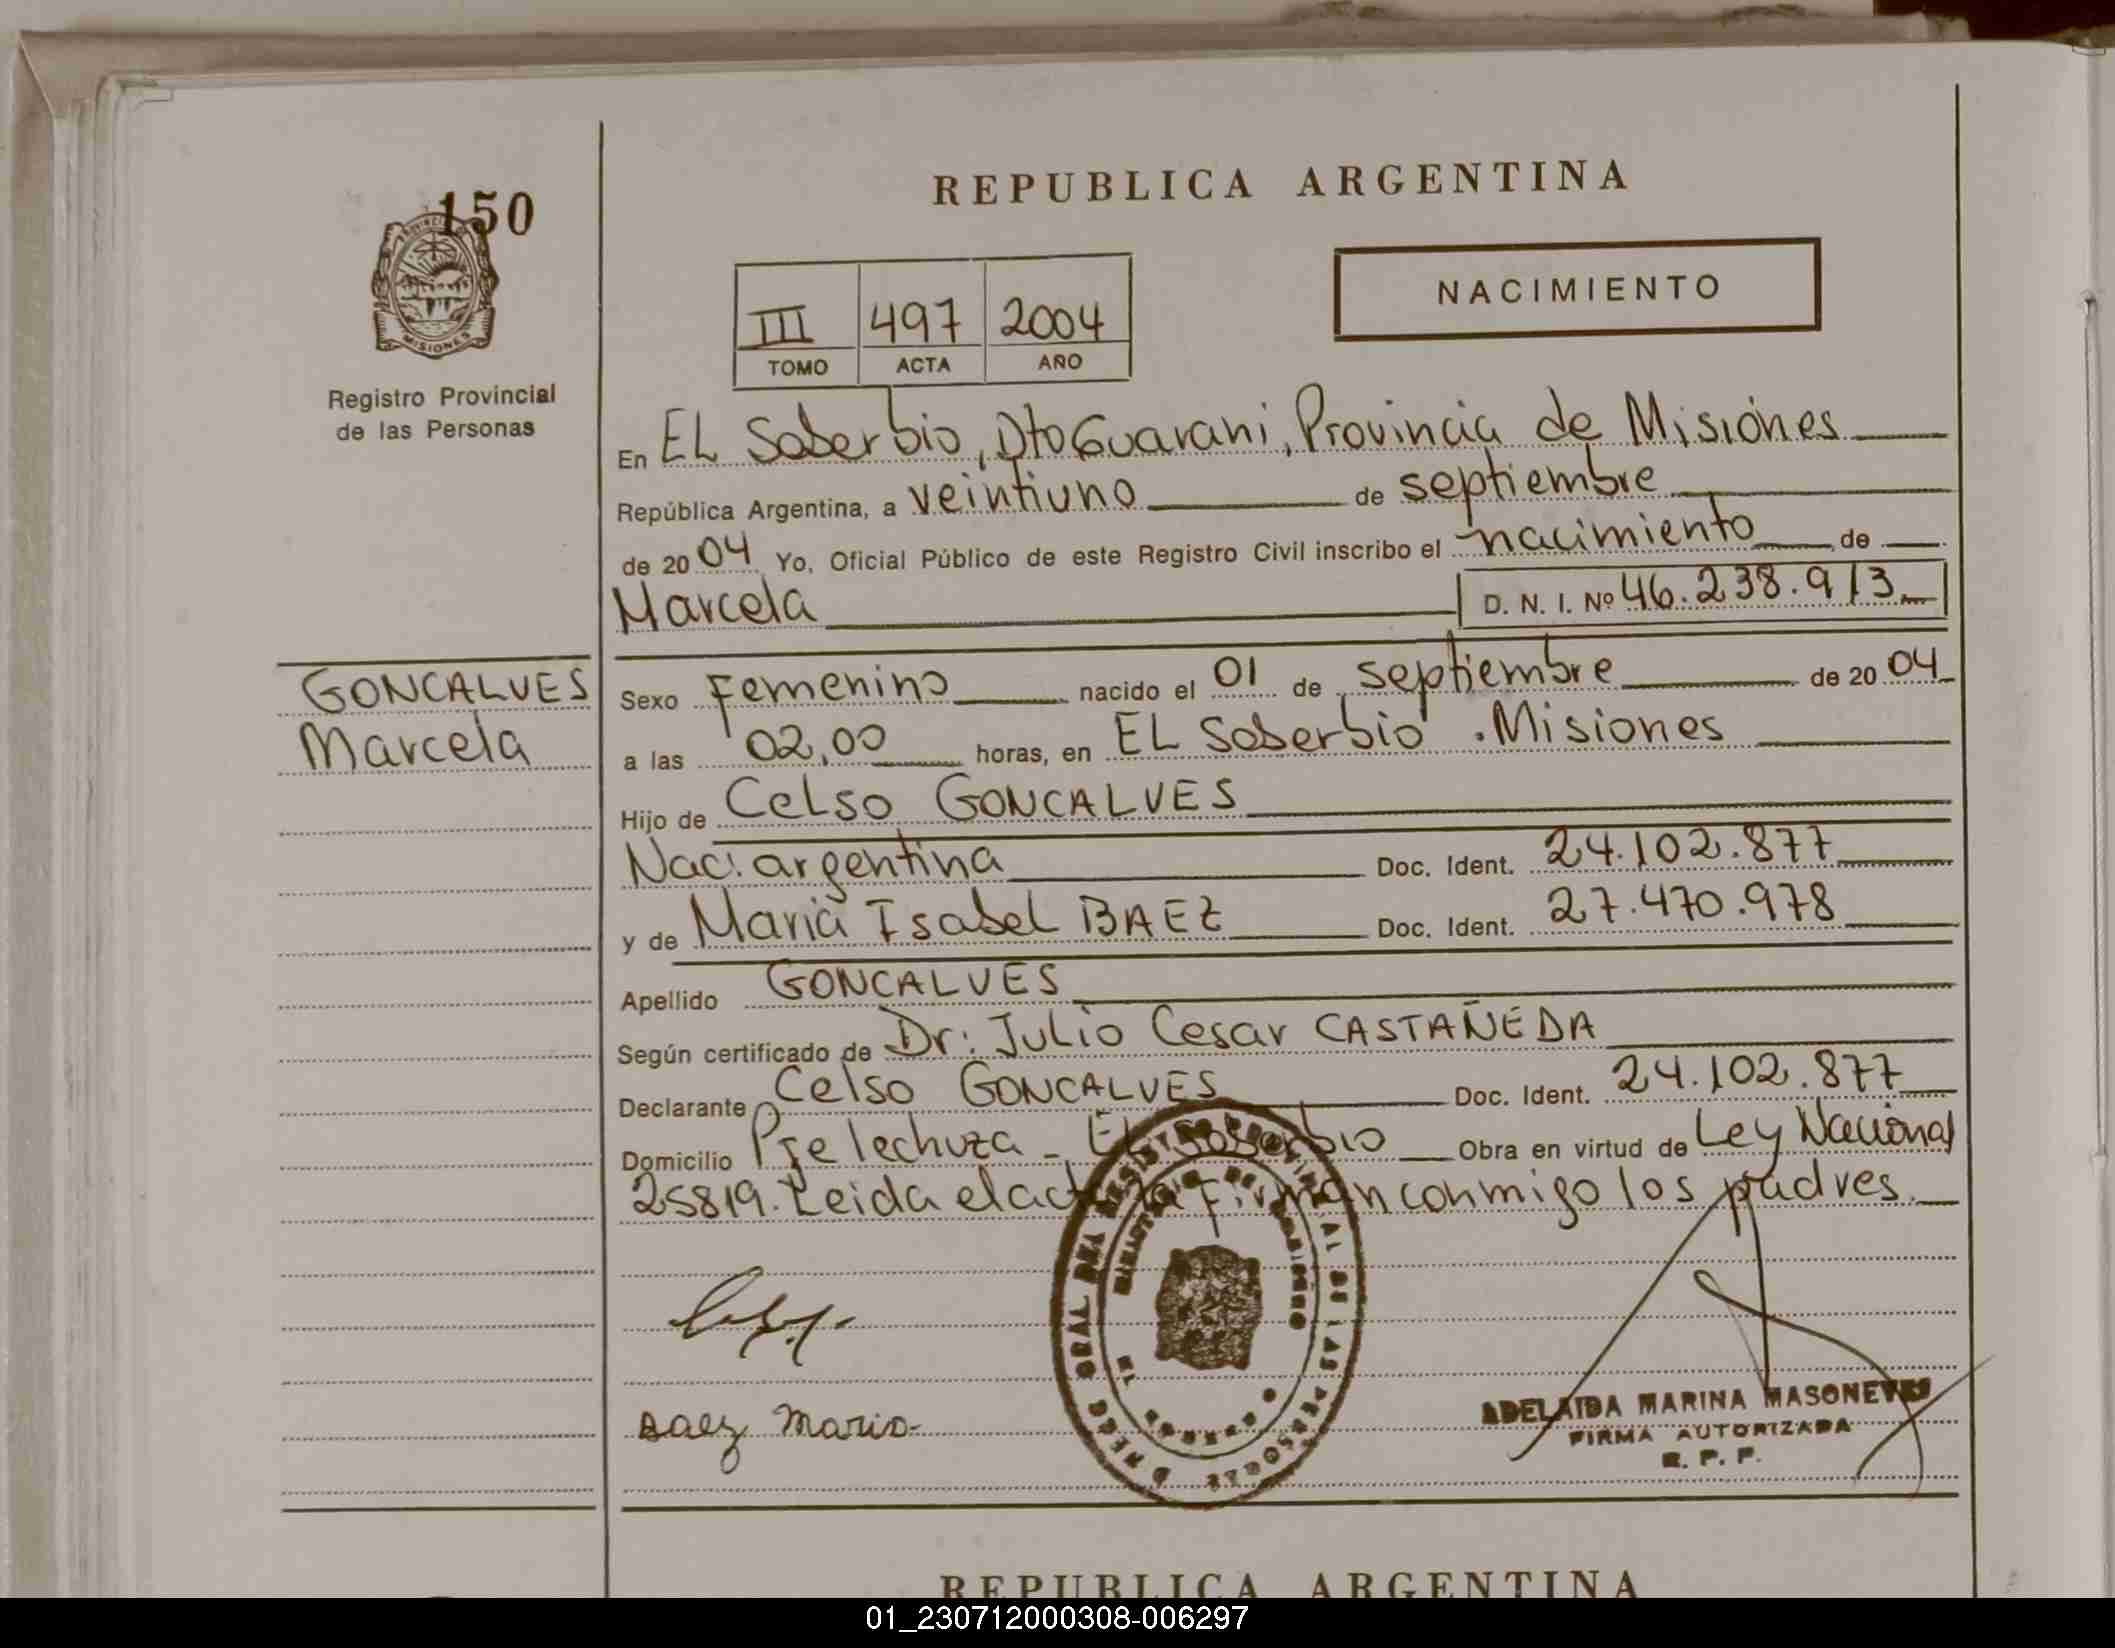 150
PROVINCIA
MISIONES
Registro Provincial
de las Personas
REPUBLICA ARGENTINA
III 497 2004
TOMO ACTA AÑO
NACIMIENTO
En EL Soberbio, Dto Guarani, Provincia de Misiones
República Argentina, a veintiuno de septiembre
de 2004 Yo, Oficial Público de este Registro Civil inscribo el nacimiento de
Marcela D. N. I. Nº 46.238.913
GONCALVES
Marcela
Sexo Femenino nacido el 01 de septiembre de 2004
a las 02,00 horas, en EL Soberbio . Misiones
Hijo de Celso GONCALVES
Nac: argentina Doc. Ident. 24.102.877
y de Maria Isabel BAEZ Doc. Ident. 27.470.978
Apellido GONCALVES
Según certificado de Dr: Julio Cesar CASTAÑEDA
Declarante Celso GONCALVES Doc. Ident. 24.102.877
Domicilio Pje lechuza - EL Soberbio Obra en virtud de Ley Nacional
25819. Leida el acta la Firman conmigo los padres.
Baez Maria
ADELAIDA MARINA MASONEVES
FIRMA AUTORIZADA
R. P. P.
REPUBLICA ARGENTINA
01_230712000308-006297